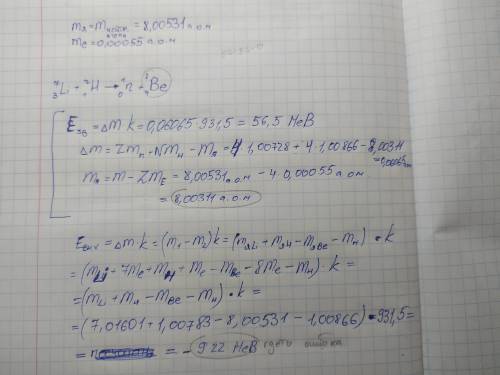 mя = m нейтр. атома = 8,00531 а.о.м
mе = 0,00055 а.о.м
⁷₃Li + ²₁H → ¹₀n + ⁸₄Be
Eзв = Δm·k = 0,06065·931,5 = 56,5 МеВ
Δm = Zmн - Nmн - Mя = 4·1,00728 + 4·1,00866 - 8,00311 = 0,06065
Mя = m - Zmе = 8,00531 а.о.м - 4·0,00055 а.о.м
= 8,00311 а.о.м
Eвих = Δm·k = (m₁ - m₂)k = (mяLi + mяH - mяBe - mн)·k
= (mLi + 7mе + mH + mе - mBe - 8mе - mн)·k =
= (mLi + mн - mBe - mн)·k =
= (7,01601 + 1,00783 - 8,00531 - 1,00866)·931,5 =
= = - 922 МеВ где-то ошибка